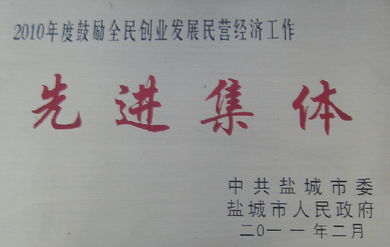 2010年度鼓励全民创业发展民营经济工作
先进集体
中共盐城市委
盐城市人民政府
二〇一一年二月